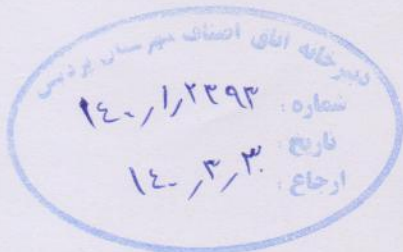 دبیرخانه اتاق اصناف شهرستان پردیس
شماره: ۱۴۰۰/۱/۲۳۹۳
تاریخ: ۱۴۰۰/۳/۳
ارجاع: